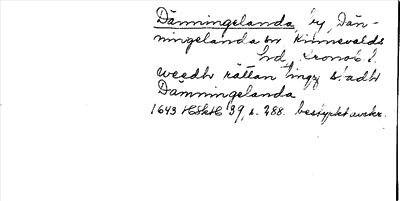 Dänningelanda, by, Dän-
ningelanda sn Kinnevalds
hrd, Kronob. l.
weedh rättan tingz stadh
Dämningelanda
1643 HSkH 39, s. 288. bestyrkt avskr.